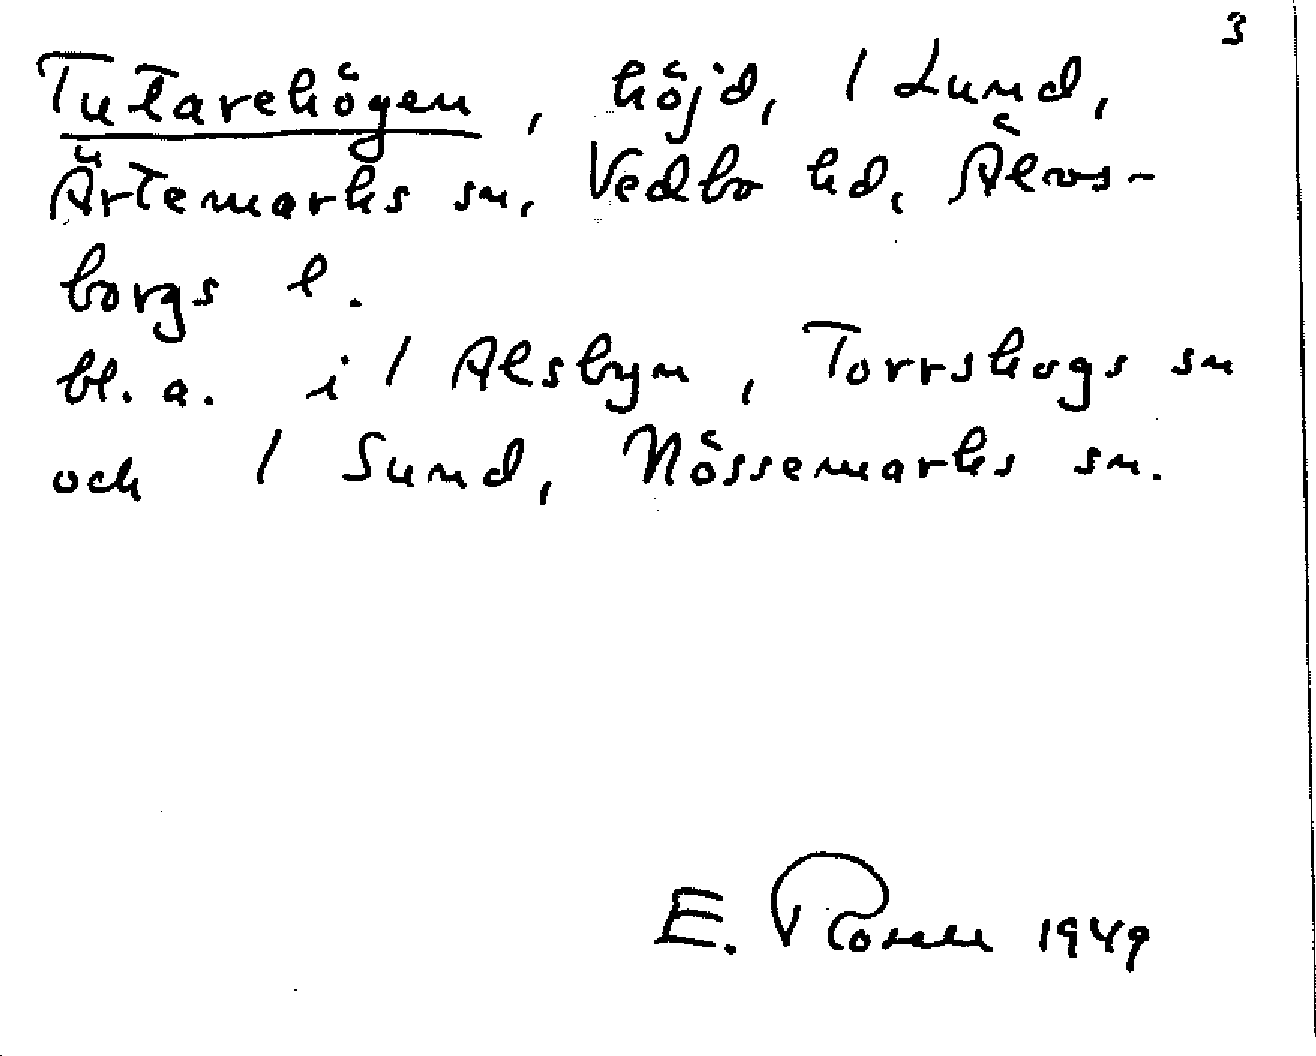 3
Tutarehögen, höjd, / Lund,
Ärtemarks sn, Vedbo hd, Älvs-
borgs l.
bl. a. i / Alsbyn, Torrskogs sn
och / Sund, Nössemarks sn.
E. Rosell 1949